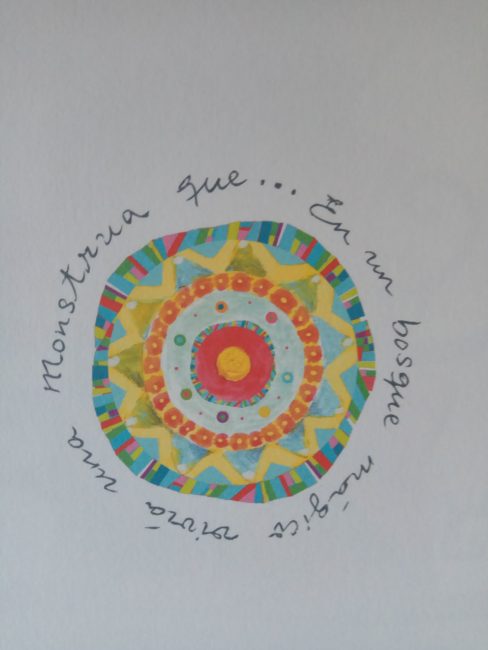 En un bosque mágico vivía una monstrua que...